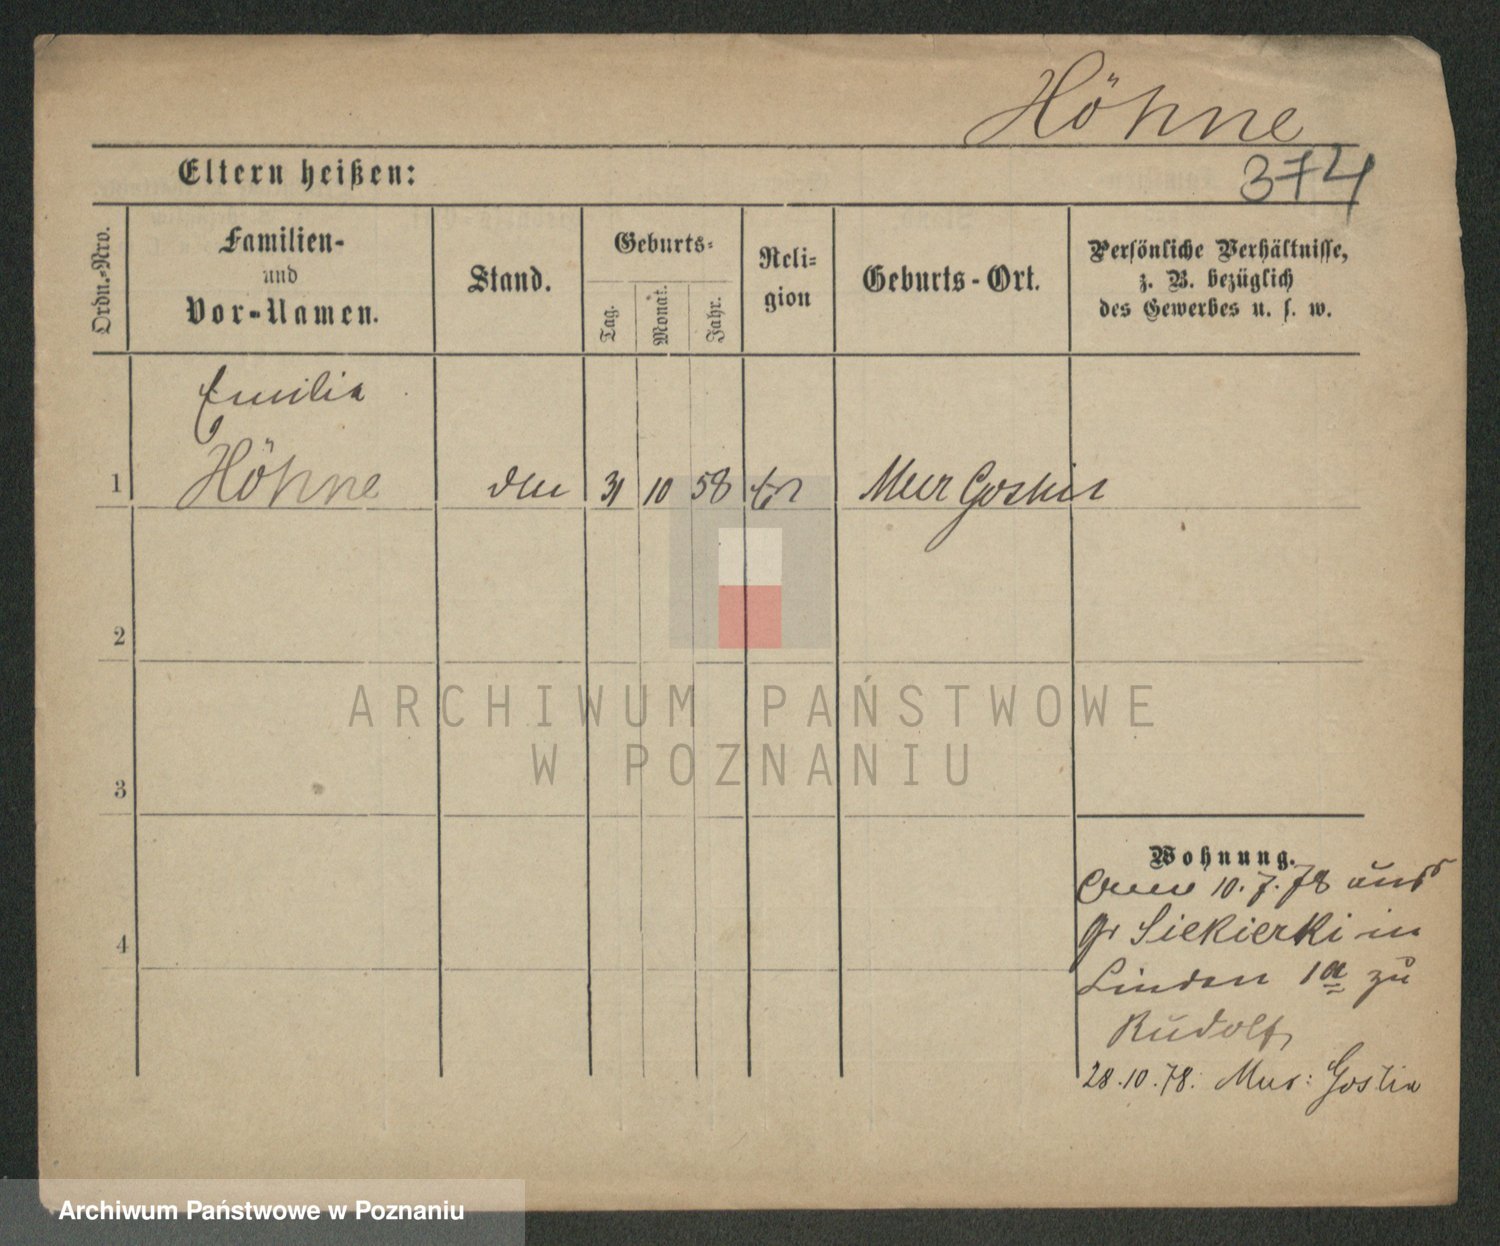 Höhne
374
Eltern heißen:
Ordn.-Nro.
Familien-
und
Vor-Namen.
Stand.
Geburts-
Tag.
Monat.
Jahr.
Reli-
gion
Geburts-Ort.
Persönliche Verhältnisse,
z. B. bezüglich
des Gewerbes u. s. w.
Emilia
1 Höhne 31 10 58 Mur Goslin
2
3
4
Wohnung.
10.7.78 aus
gr Siekierki in
Linden 1a zu
Rudolf
28.10.78. Mur: Goslin
ARCHIWUM PAŃSTWOWE
W POZNANIU
Archiwum Państwowe w Poznaniu